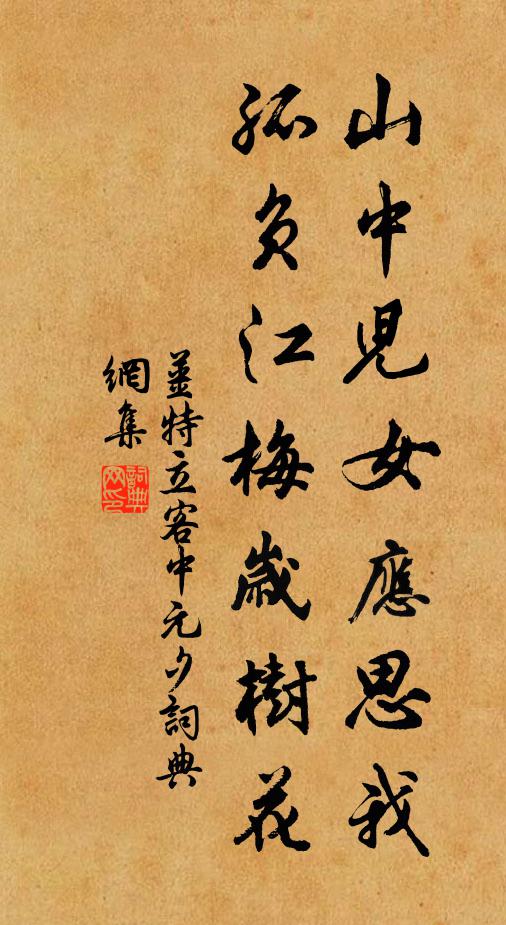 山中兒女應思我
孤負江梅歲樹花
薑特立客中元夕詞典
網集
詞典
网印